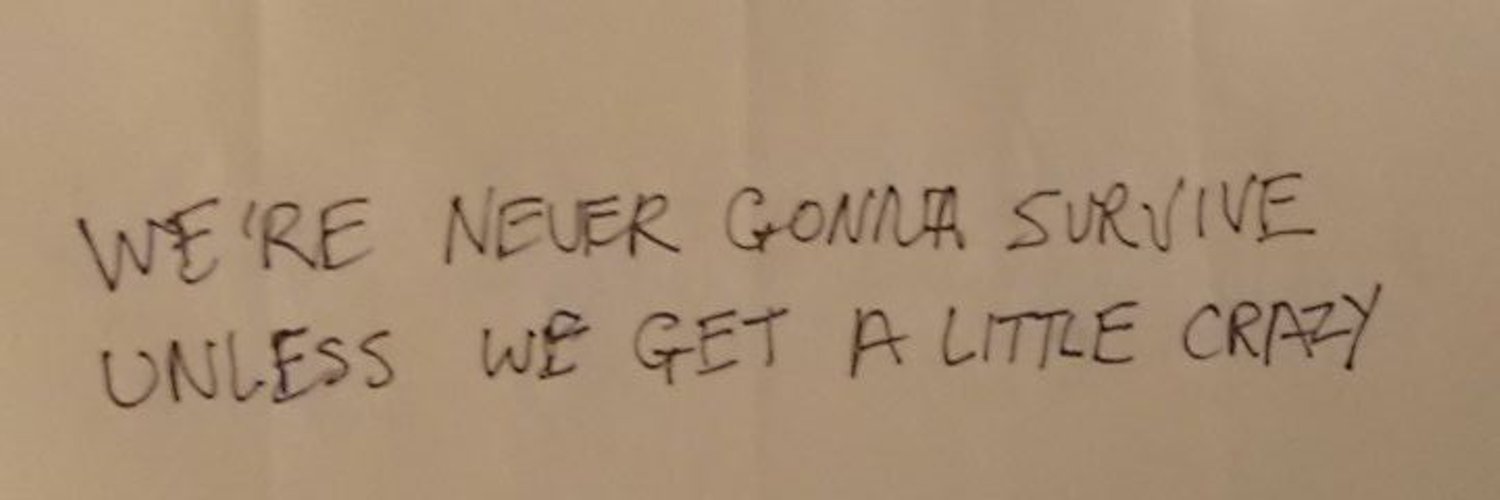 WE'RE NEVER GONNA SURVIVE
UNLESS WE GET A LITTLE CRAZY